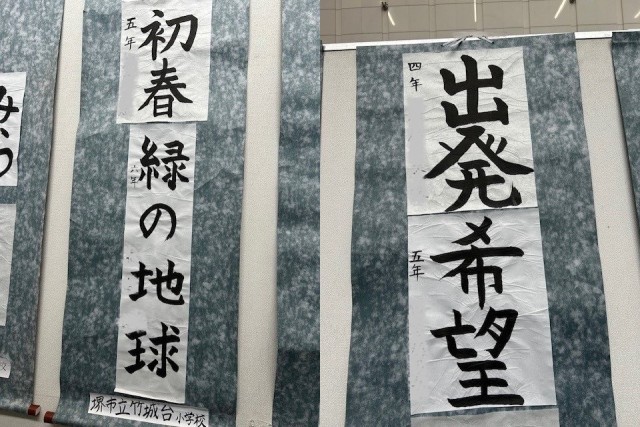 五年
初春
六年
緑の地球
堺市立竹城台小学校
四年
出発
五年
希望